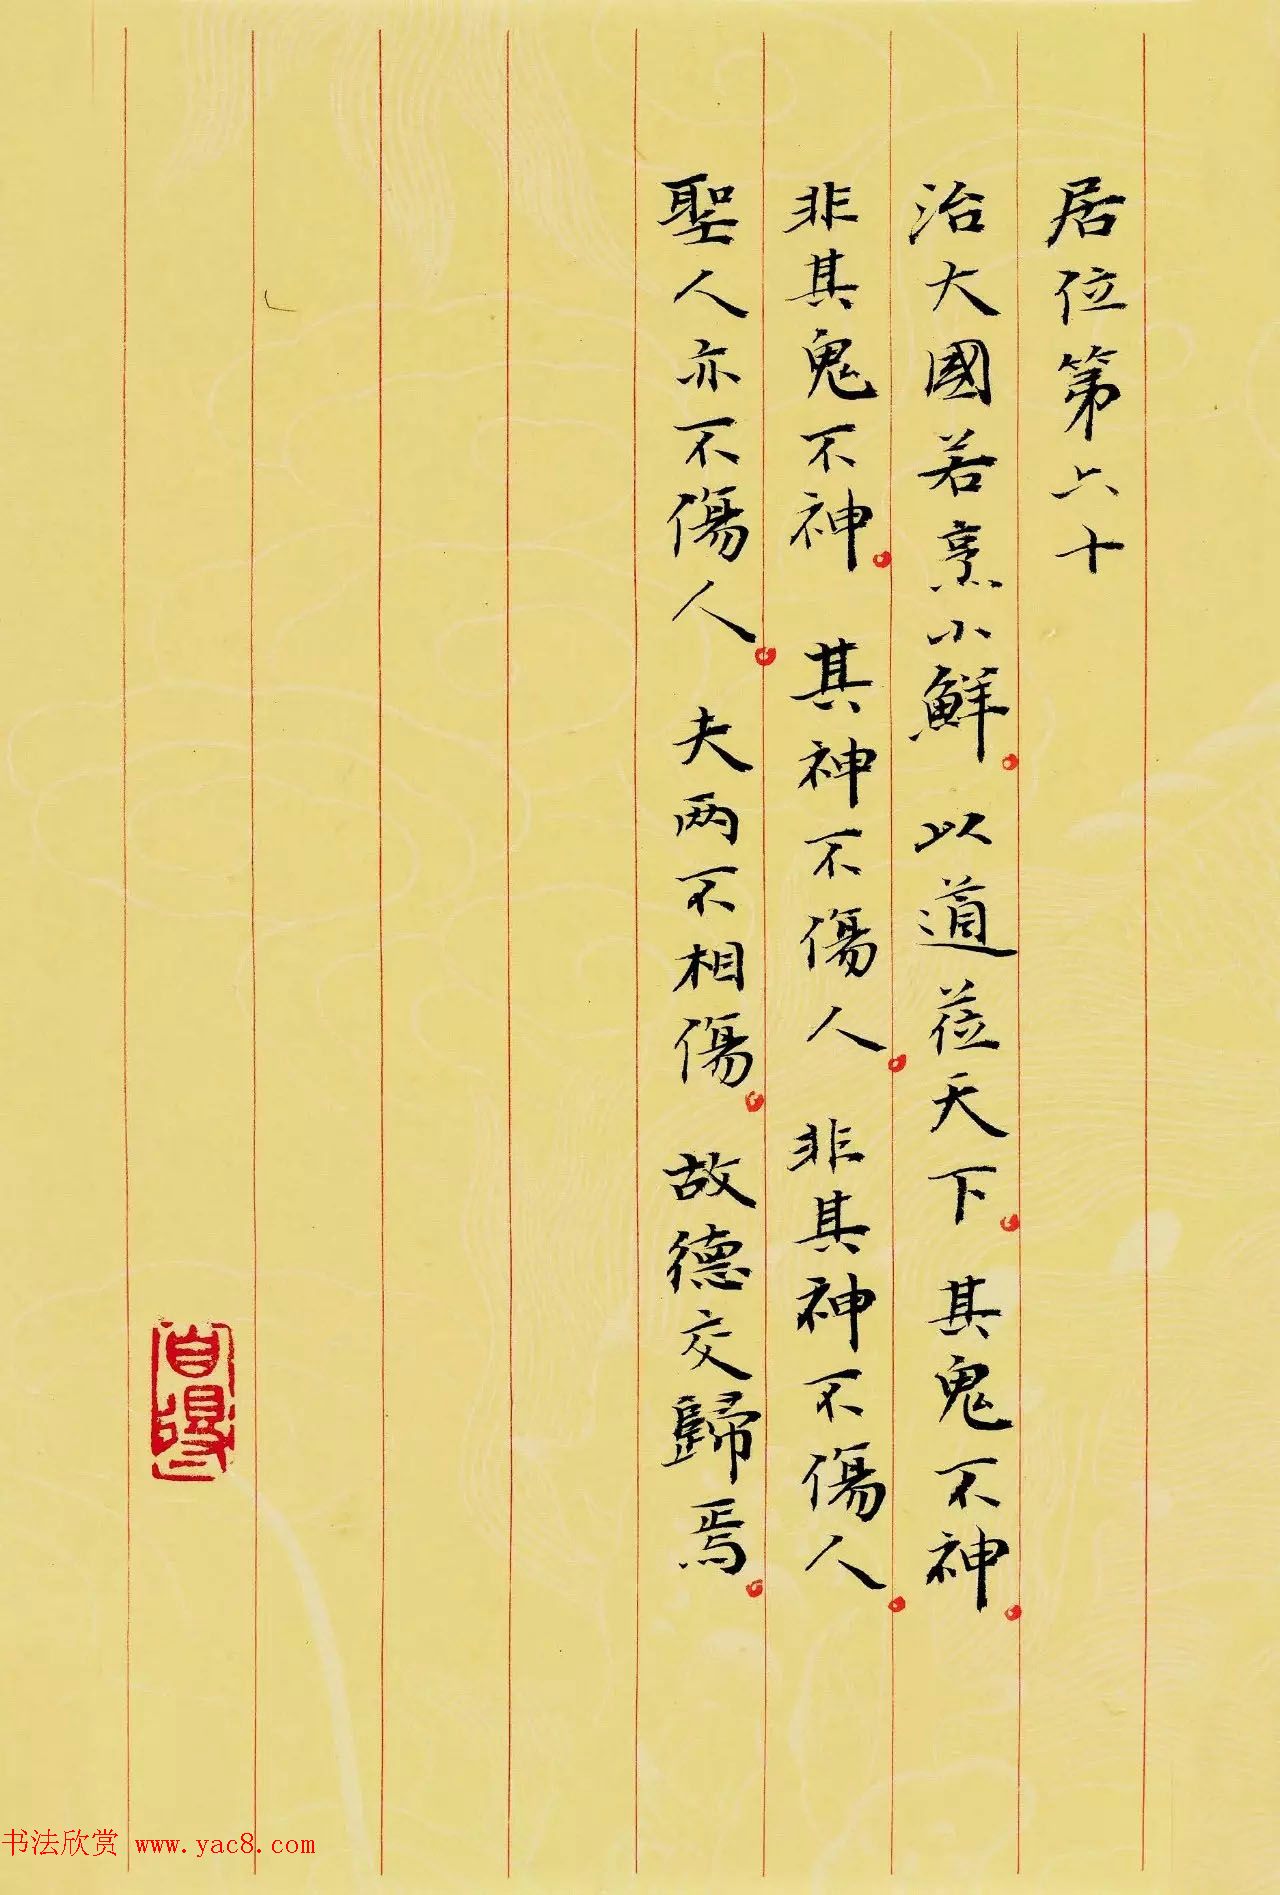 居位第六十
治大國若烹小鮮。以道莅天下。其鬼不神。
非其鬼不神。其神不傷人。非其神不傷人。
聖人亦不傷人。夫两不相傷。故德交歸焉。
书法欣赏 www.yac8.com